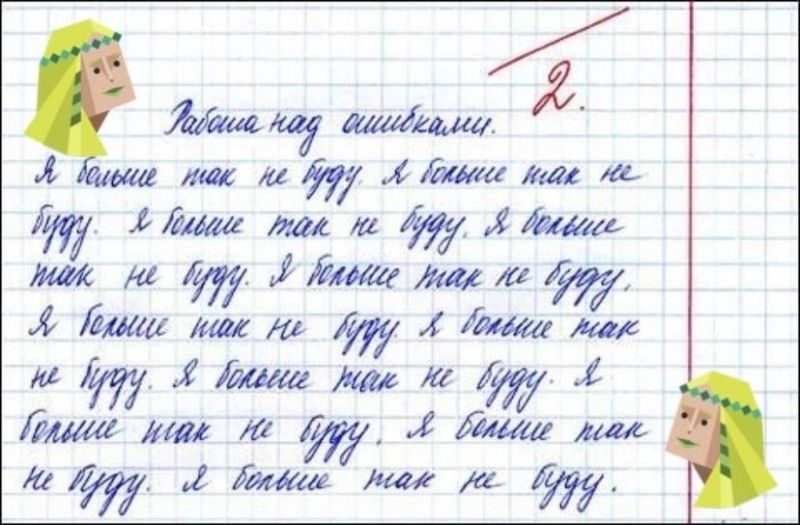 2.
Работа над ошибками.
Я больше так не буду. Я больше так не
буду. Я больше так не буду. Я больше
так не буду. Я больше так не буду.
Я больше так не буду. Я больше так
не буду. Я больше так не буду. Я
больше так не буду. Я больше так
не буду. Я больше так не буду.